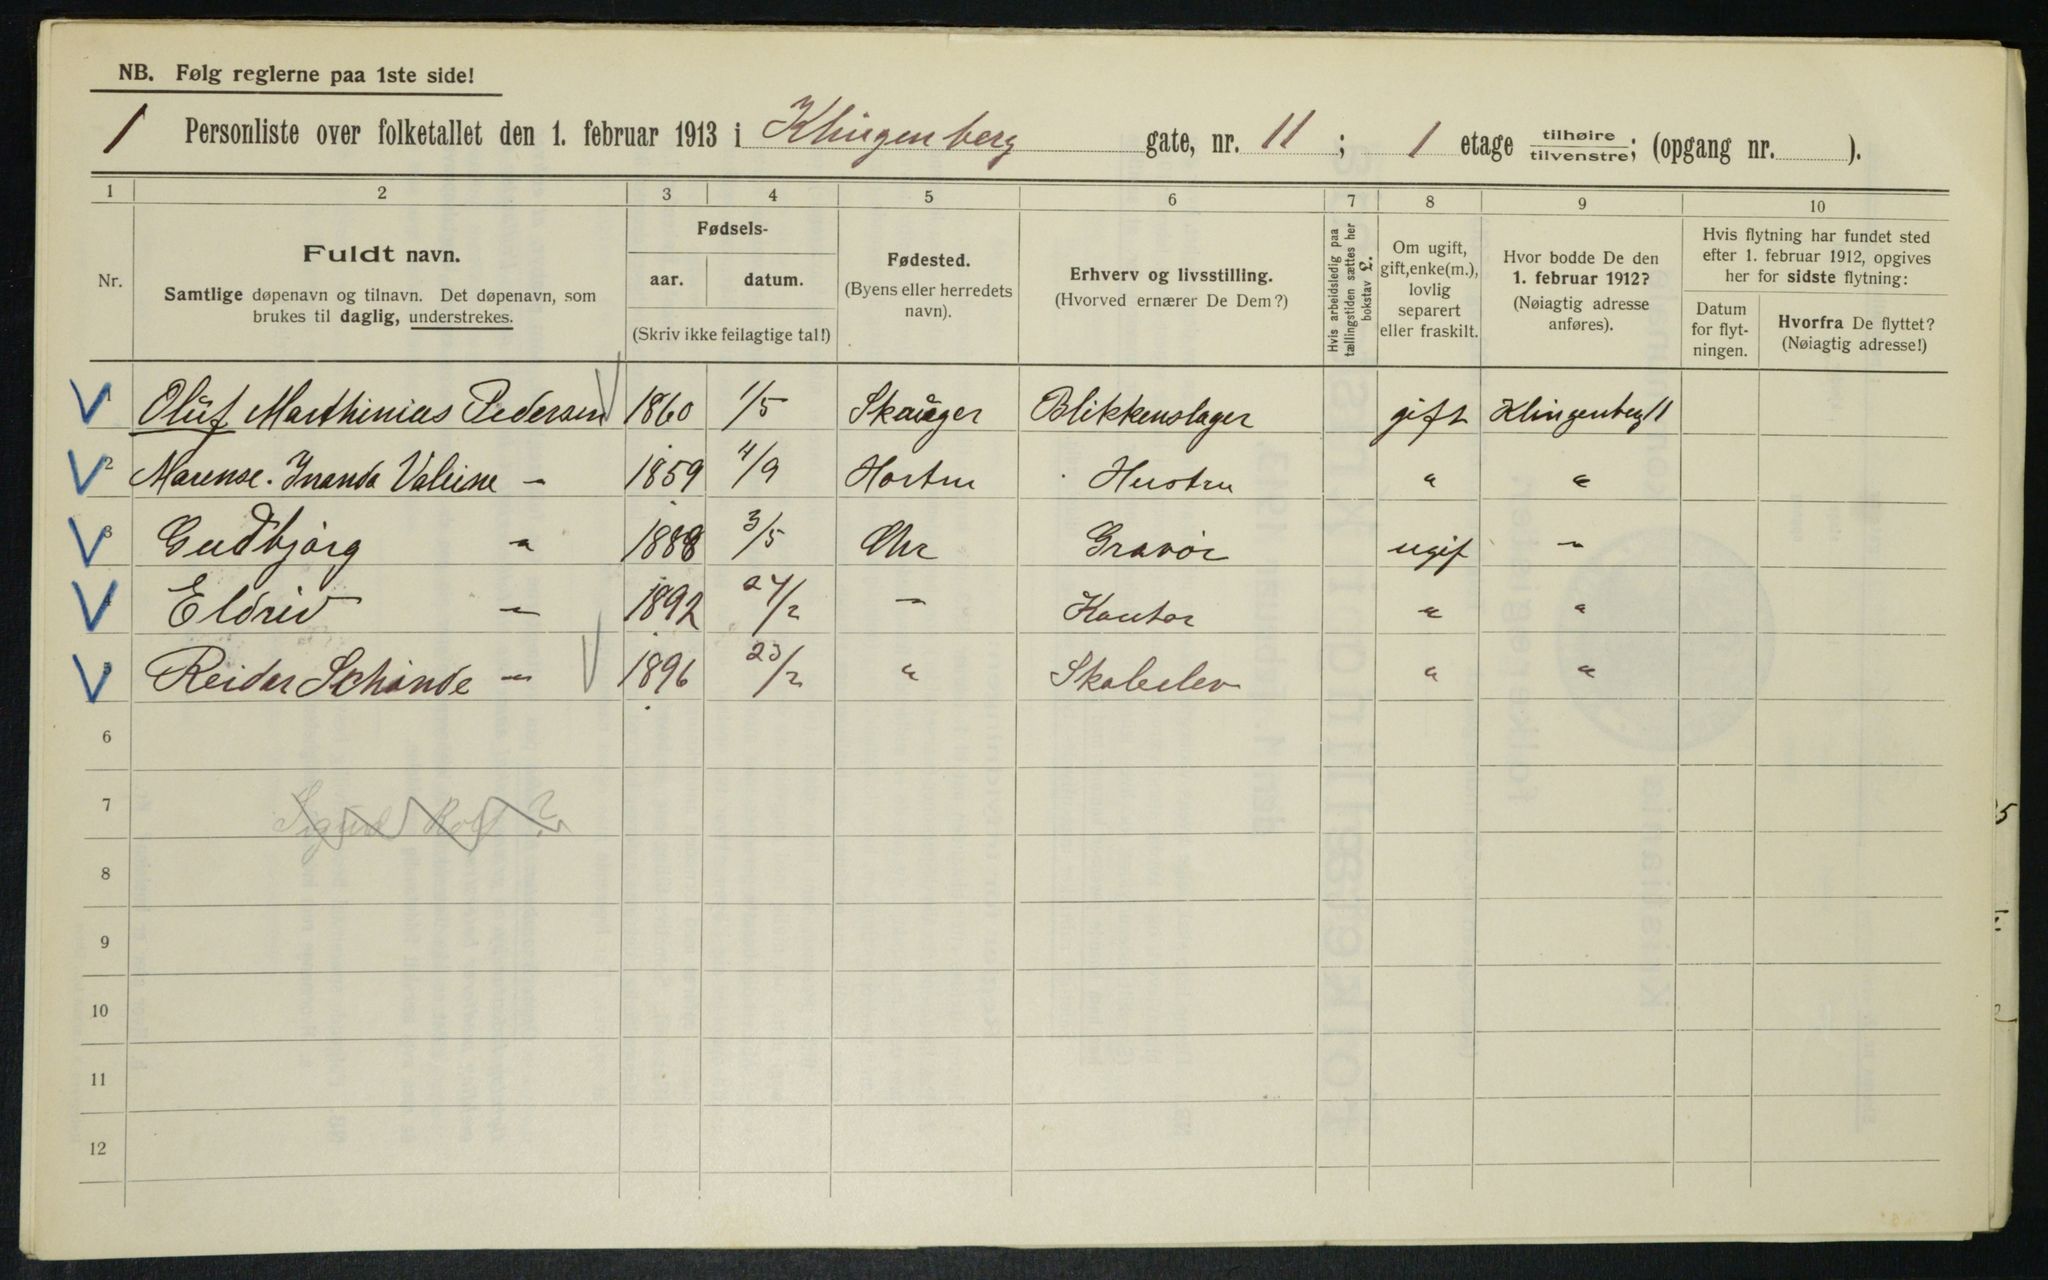 NB. Følg reglerne paa 1ste side!
1 Personliste over folketallet den 1. februar 1913 i Klingenberg gate, nr. 11 ; 1 etage tilhøire tilvenstre; (opgang nr. ).
1 2 3 4 5 6 7 8 9 10
Nr.
Fuldt navn.
Samtlige døpenavn og tilnavn. Det døpenavn, som
brukes til daglig, understrekes.
Fødsels-
aar. datum.
(Skriv ikke feilagtige tal!)
Fødested.
(Byens eller herredets
navn).
Erhverv og livsstilling.
(Hvorved ernærer De Dem?)
Hvis arbeidsledig paa
tællingstiden sættes her
bokstav L.
Om ugift,
gift, enke(m.),
lovlig
separert
eller fraskilt.
Hvor bodde De den
1. februar 1912?
(Nøiagtig adresse
anføres).
Hvis flytning har fundet sted
efter 1. februar 1912, opgives
her for sidste flytning:
Datum
for flyt-
ningen.
Hvorfra De flyttet?
(Nøiagtig adresse!)
1 Oluf Marthinius Pedersen 1860 1/5 Skauger Blikkenslager gift Klingenbeg 11
2 Marense. Inanda Valeine " 1859 4/9 Horten Hustru " "
3 Gudbjørg " 1888 3/5 Chr Gravør ugif "
4 Eldrid " 1892 24/2 " Kontor " "
5 Reidar Schånde " 1896 23/2 " Skoleelev " "
6
7 Sigurd Rolf ?
8
9
10
11
12